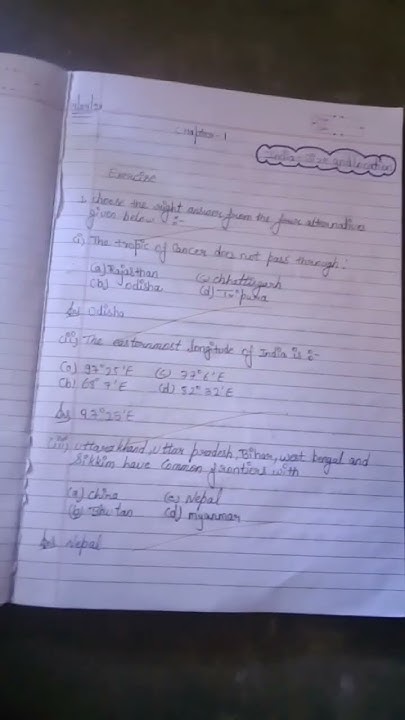 Chapter-1
India - Size and Location
Exercise
1. Choose the right answer from the four alternatives
given below :-
(i) The tropic of Cancer does not pass through:
(a) Rajasthan (c) chhattisgarh
(b) odisha (d) Tripura
Ans odisha
(ii) The easternmost longitude of India is :-
(a) 97°25'E (c) 77°6'E
(b) 68°7'E (d) 82°32'E
Ans 97°25'E
(iii) Uttarakhand, Uttar pradesh, Bihar, west bengal and
Sikkim have common frontiers with
(a) china (c) Nepal
(b) Bhutan (d) myanmar
Ans Nepal